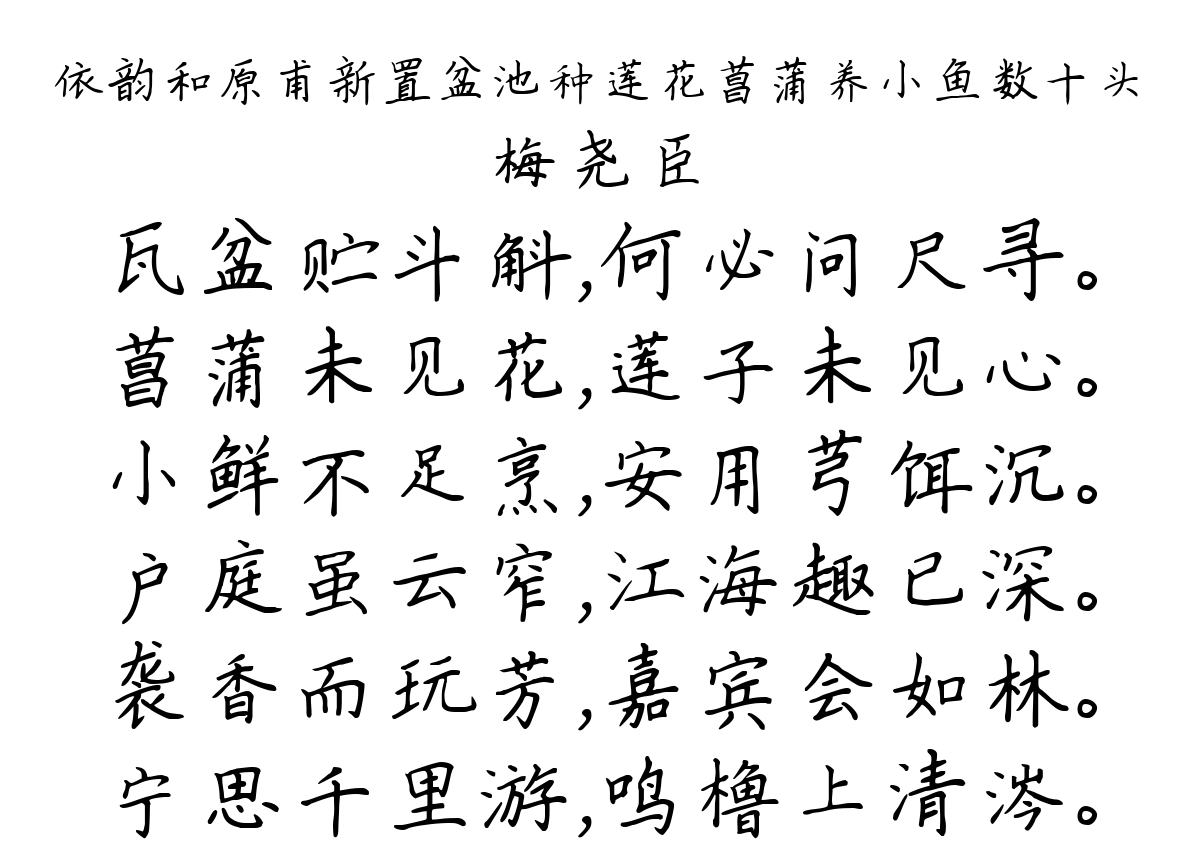 依韵和原甫新置盆池种莲花菖蒲养小鱼数十头
梅尧臣
瓦盆贮斗斛,何必问尺寻。
菖蒲未见花,莲子未见心。
小鲜不足烹,安用芎饵沉。
户庭虽云窄,江海趣已深。
袭香而玩芳,嘉宾会如林。
宁思千里游,鸣橹上清涔。